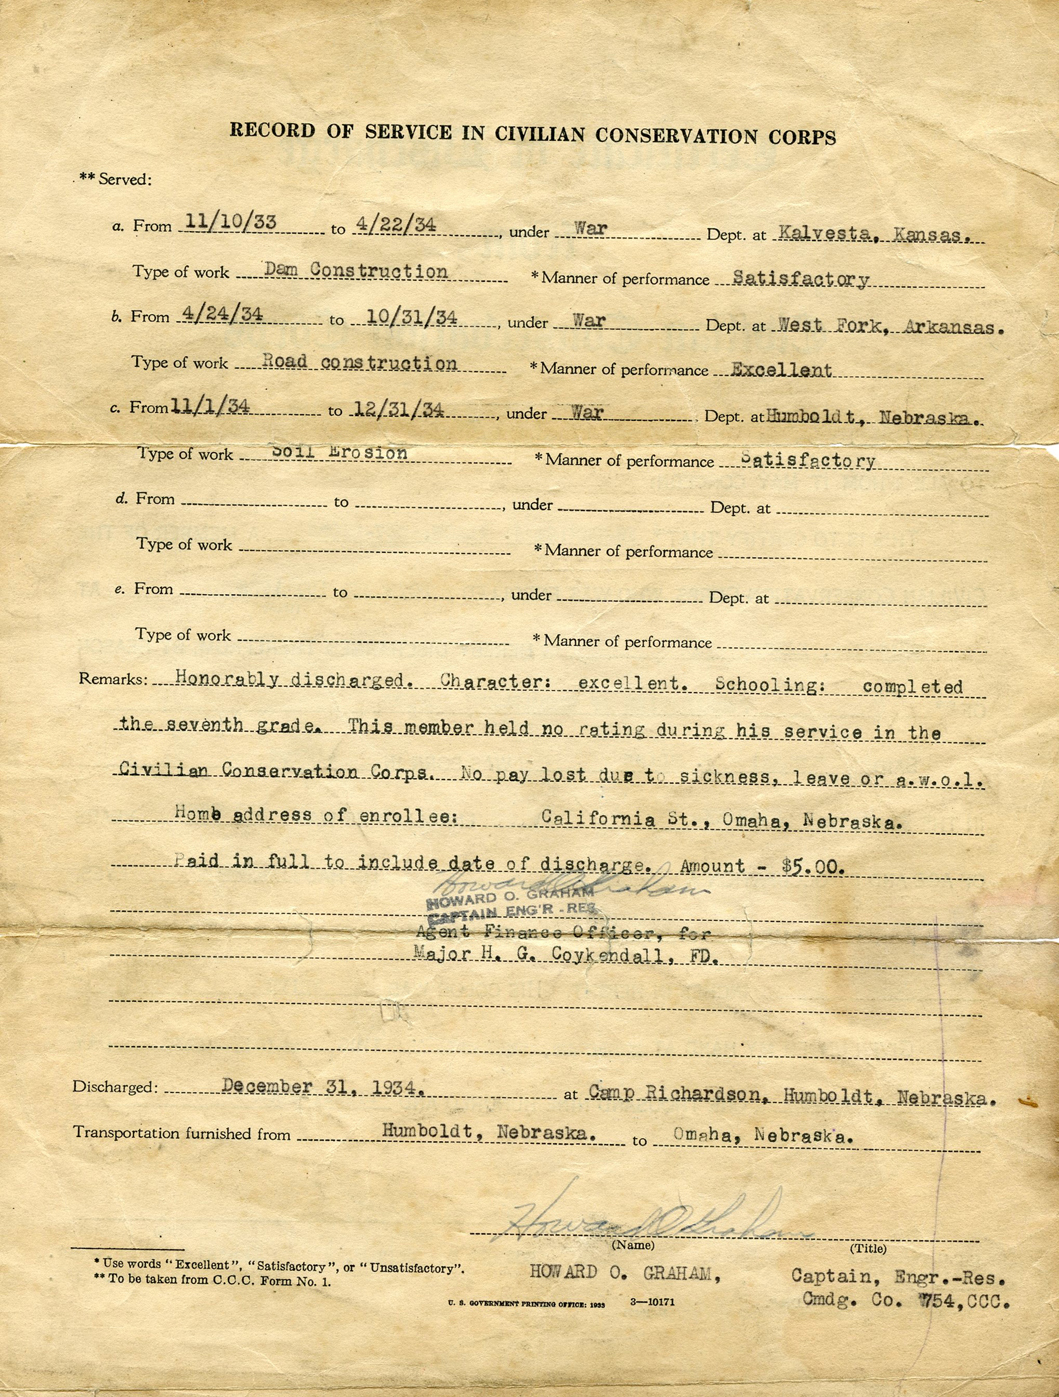 RECORD OF SERVICE IN CIVILIAN CONSERVATION CORPS
** Served:
a. From 11/10/33 to 4/22/34, under War Dept. at Kalvesta, Kansas.
Type of work Dam Construction * Manner of performance Satisfactory
b. From 4/24/34 to 10/31/34, under War Dept. at West Fork, Arkansas.
Type of work Road construction * Manner of performance Excellent
c. From 11/1/34 to 12/31/34, under War Dept. at Humboldt, Nebraska.
Type of work Soil Erosion * Manner of performance Satisfactory
d. From to , under Dept. at
Type of work * Manner of performance
e. From to , under Dept. at
Type of work * Manner of performance
Remarks: Honorably discharged. Character: excellent. Schooling: completed
the seventh grade. This member held no rating during his service in the
Civilian Conservation Corps. No pay lost due to sickness, leave or a.w.o.l.
Home address of enrollee: California St., Omaha, Nebraska.
Paid in full to include date of discharge. Amount - $5.00.
Howard O Graham
HOWARD O. GRAHAM
CAPTAIN ENG'R - RES
Agent Finance Officer, for
Major H. G. Coykendall, FD.
Discharged: December 31, 1934. at Camp Richardson, Humboldt, Nebraska.
Transportation furnished from Humboldt, Nebraska. to Omaha, Nebraska.
Howard O Graham
(Name) (Title)
* Use words "Excellent", "Satisfactory", or "Unsatisfactory".
** To be taken from C.C.C. Form No. 1.
HOWARD O. GRAHAM, Captain, Engr.-Res.
Cmdg. Co. 754,CCC.
U. S. GOVERNMENT PRINTING OFFICE: 1933 3—10171